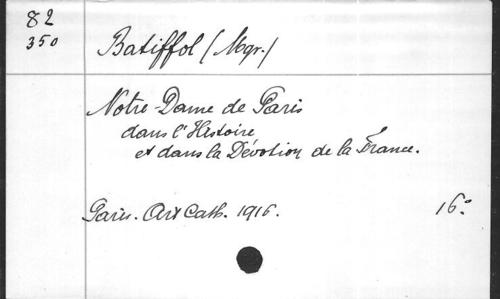 82
350
Batiffol (Mgr.)
Notre-Dame de Paris
dans l'Histoire
et dans la Dévotion de la France.
Paris. Art Cath. 1916. 16°